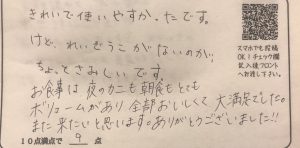 きれいで使いやすかったです。
けど、れいぞうこがないのが、
ちょっとさみしいです。
お食事は夜のカニも朝食もとても
ボリュームがあり全部おいしくて大満足でした。
また来たいと思います。ありがとうございました!!
10点満点で 9 点
スマホでも投稿
OK!チェック欄
記入後フロント
へお渡し下さい。